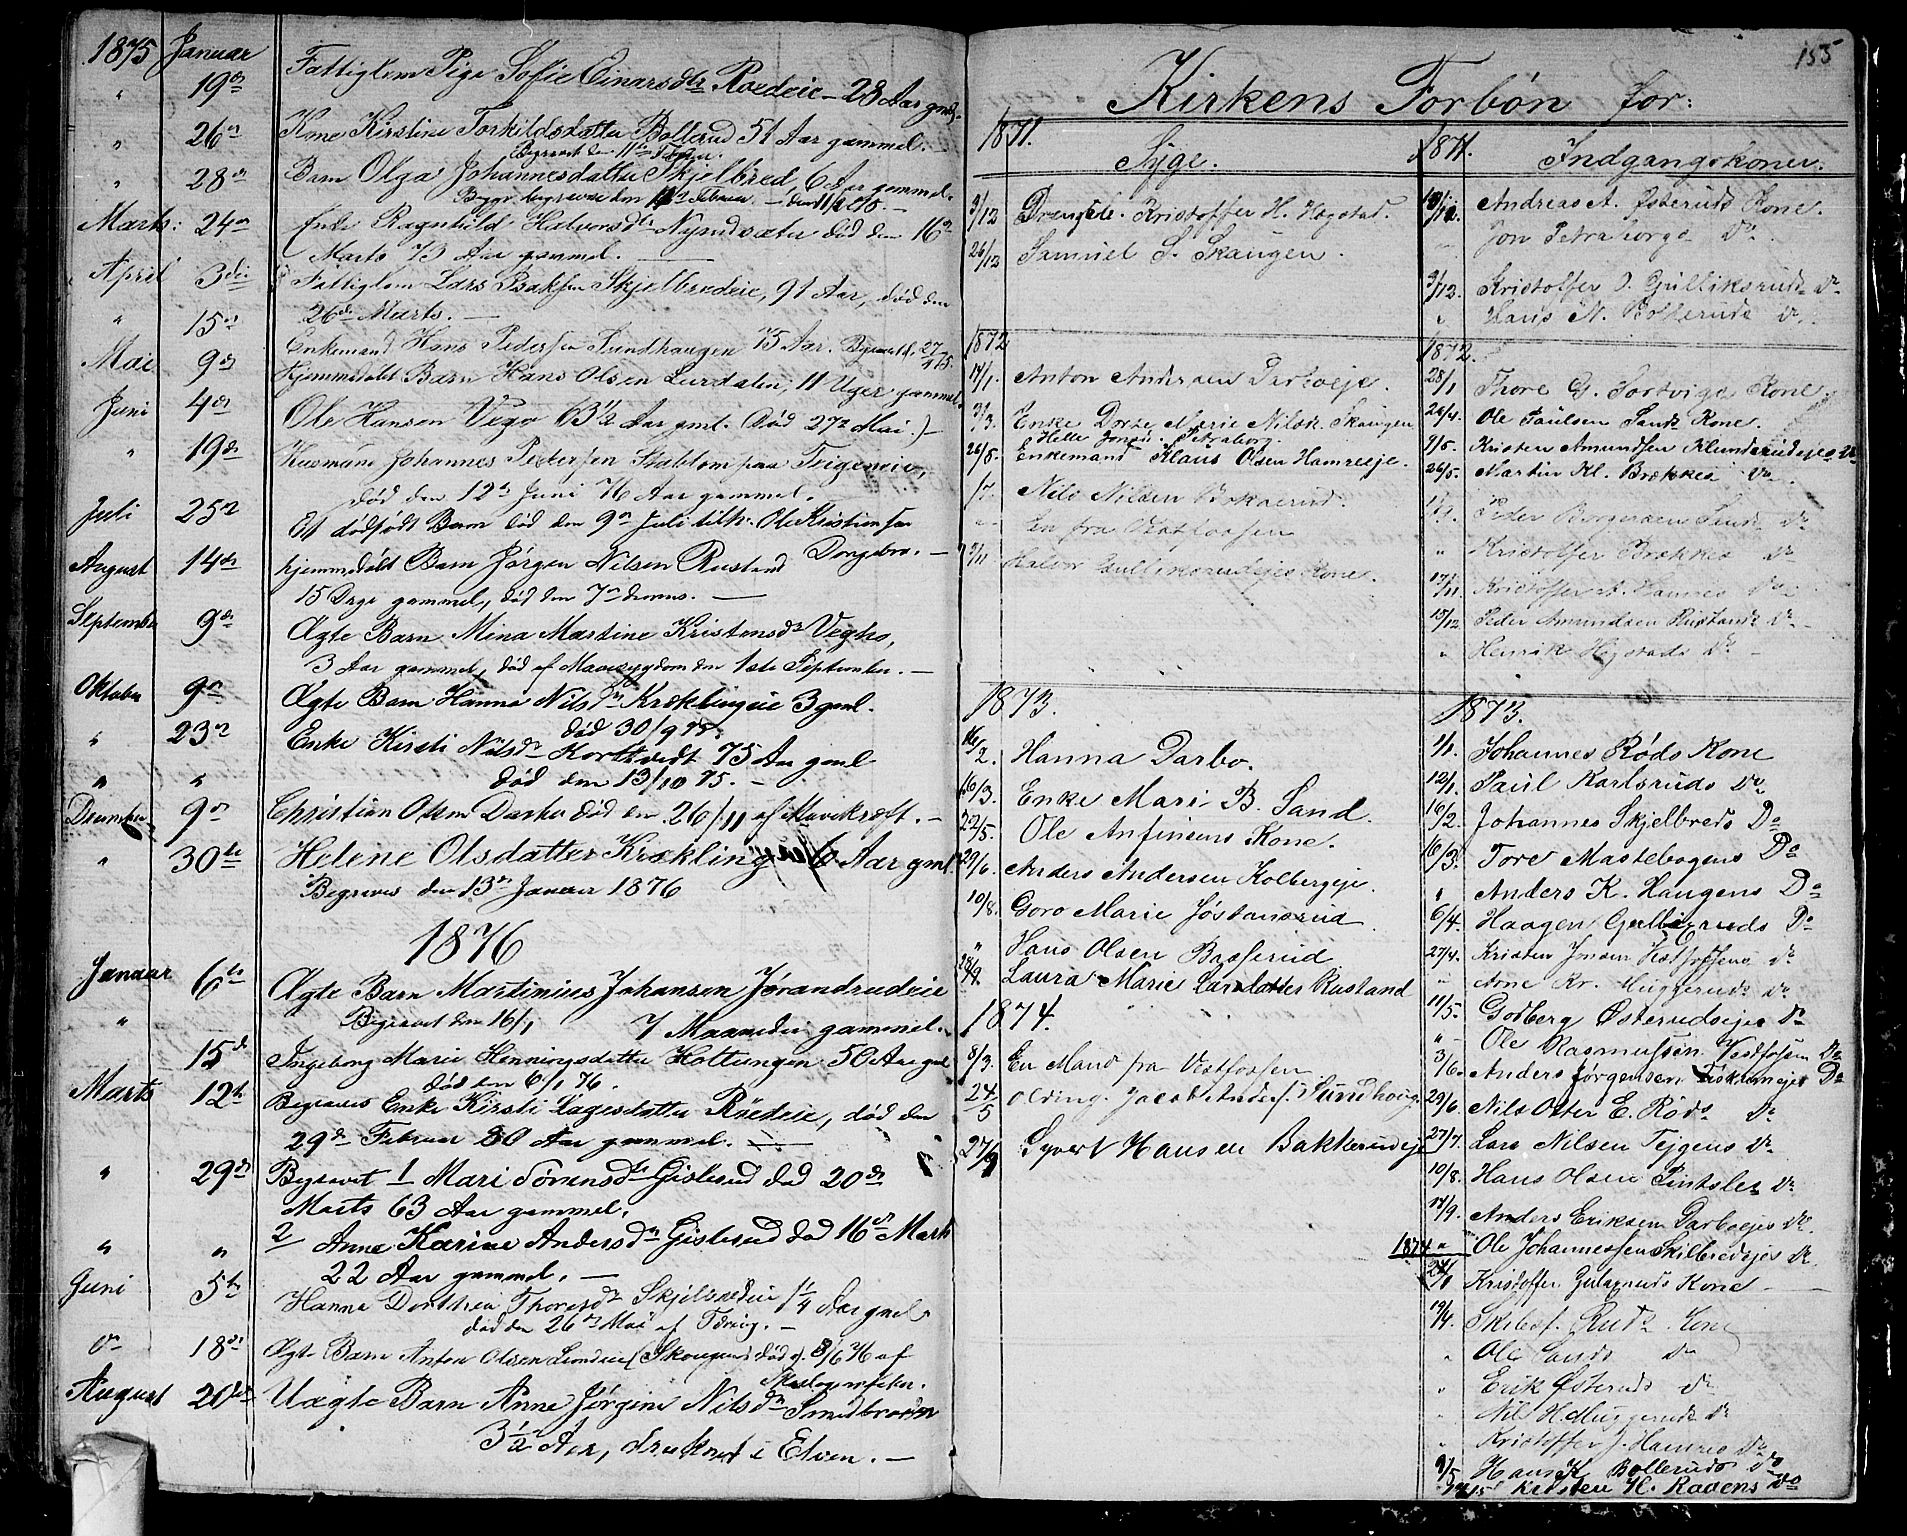 1875 Januar
" 19de Fattiglem Pige Sofie Einarsdtr Roedeie - 28 Aar gml.
" 26de Kone Kirstine Torkildsdatter Bollerud 51 Aar gammel. -
Begravet den 11te Febru.
" 28de Barn Olga Johannesdatter Skjelbred, 6 Aar gammel.
begraves den Februar.
Marts: 24de Enke Ragnhild Halvorsdtr død den 16de
Marts 73 Aar gammel. -
April 3die Fattiglem Lars Skjelbredeie, 91 Aar, død den
26de Marts. -
" 15de Enkemand Hans Pedersen Sundhaugen 75 Aar. Begravet d. 27/4 75.
Mai 9de Hjemmedøbt Barn Hans Olsen Lurdalen, 11 Uger gammel.
Juni 4de Ole Hansen Vego 63 1/2 Aar gml. (Død 27de Mai.) -
" 19de Husmand Johannes Pedersen paa Teigeneie,
død den 12te Juni 76 Aar gammel.
Juli 25de Et dødfødt Barn død den 9de Juli tilh. Ole Kristiansen
Dongebro. -
August 14de hjemmedøbt Barn Jørgen Nilsen Rustand
15 Dage gammel, død den 7de dennes. -
September 9de Ægte Barn Mina Martine Kristensdr Vegho,
3 Aar gammel, død af den 1ste September. -
Oktober 9de Ægte Barn Hanna Nilsdr Kræklingeie 3 gml.
død 30/9 75.
" 23de Enke Kirsti Nilsdr 75 Aar gml
" " død den 13/10 75. -
December 9de Christian Olsen Darbu død den 26/11 af Mavekræft. -
" 30te Helene Olsdatter Krækling 6 Aar gml.
Begraves den 13de Januar 1876
1876
Januar 6te Ægte Barn Martinius Johansen Jørandrudeie
" Begravet den 16/1 7 Maaneder gammel.
15de Ingeborg Marie Henningsdatter Holtungen 50 Aar gml
død den 6/1 76.
Marts 12te Begraves Enke Kirsti Lagesdatter Röedeie, død den
29de Februar 80 Aar gammel. -
" 29de Begravet 1 Mari Sørensdtr Gislerud død 20de
Marts 63 Aar gammel.
" " 2 Anne Karine Andersdr Gislerud død 16de Marts
22 Aar gammel. -
Juni 5te Hanna Dorthea Thoresdr 1/4 Aar gml.
død den 26de Mai af Tæring. -
do 18de Ægte Barn Anton Olsen (Skougen) død d. 8/6 76 af
August 20de Uægte Barn Anne Jørgine Nilsdr Smedbraaten
3 1/2 Aar, druknet i Elven. -
155
Kirkens Forbön for:
1871. Syge.
3/12 Drengele. Kristoffer H. Hogstad.
26/12 Samuel S. Skaugen.
1872
14/1. Anton Andersen Darboeje.
3/3. Enke Dorte Marie Nilsdr. Skaugen
Helle Jonsen. Petraborg.
26/5. Enkemand Klaus Olsen Hamreeje.
Nils Nilsen
En fra Vestfossen
Halvor Gulliksrudejes Kone.
1873.
16/2. Hanna Darbo.
16/3. Enke Mari B. Sand.
22/5. Ole Anfinsens Kone.
29/6. Anders Andersen Kolbergeje.
10/8. Goro Marie Jøstansrud
" Hans Olsen Basserud
28/9. Laura Marie Larsdatter Rustand
1874.
8/3. En Mand fra Vestfossen
24/5 Olding. Jacob Anders. Sundhaug
27/9 Syvert Hansen Bakkerudeje
1871. Indgangskoner.
Andreas A. Østeruds Kone.
Jon Petraborgs Do.
3/12. Kristoffer O. Gulliksruds Do
" Hans N. Bollerud do
1872.
28/1 Thore G. Tortvigs Kone.
28/4. Ole Paulsen Sands Kone.
9/5. Kristen Amundsen Klunderudejes Do
26/5. Martin Kl. Brækkes Do.
Peder Borgersen Sands Do
" Kristoffer Brækkes Do
17/11 Kristoffer A. Hamres Do
15/12. Peder Amundsen Rustands Do -
" Henrik Hogstads Do -
1873.
1/1. Johannes Röds Kone
12/1. Paul Karlsruds Do
16/2. Johannes Skjelbreds Do
16/3. Tore Mastebogens Do
" Anders K. Haugens Do
6/4. Haagen Gulliksruds Do
27/4. Kristen Jonsen do
" Arne Kr. Muggeruds Do
11/5. Godberg Østerudejes Do
" Ole Rasmussen Vestfossen Do
3/6. Anders Jørgensen Do
29/6. Nils Olter E. Röds Do
27/7. Lars Nilsen Tejgens Do
10/8. Hans Olsen Pintsles Do
14/9. Anders Eriksen Darboejes Do
1874 " Ole Johannessen Skilbredsejes Do
Kristoffer Kone -
19/4. Ruds Kone
" Ole Sands Do
" Erik Østeruds Do
" Nil H. Muggeruds Do
" Kristoffer J. Hamres Do
9/5 Hans K Bolleruds Do
14/5 Kristen H. Ravens Do